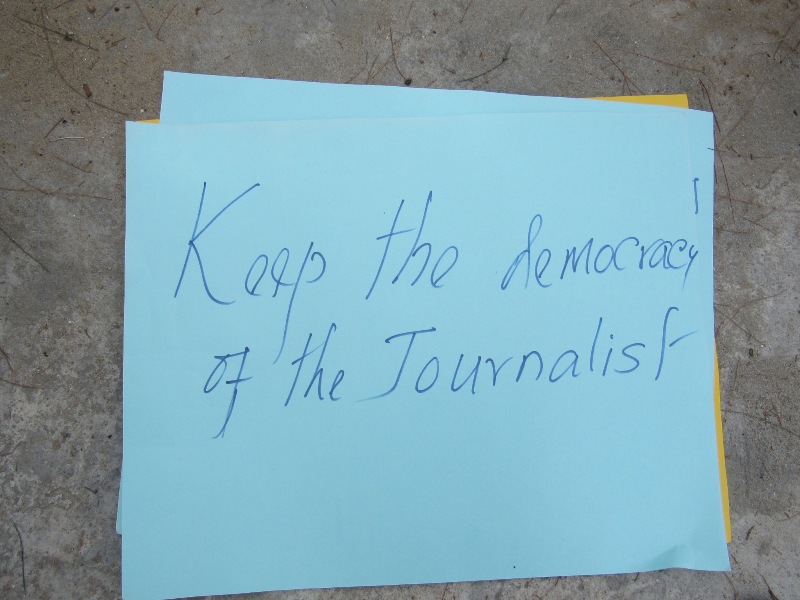 Keep the democracy
of the Journalist